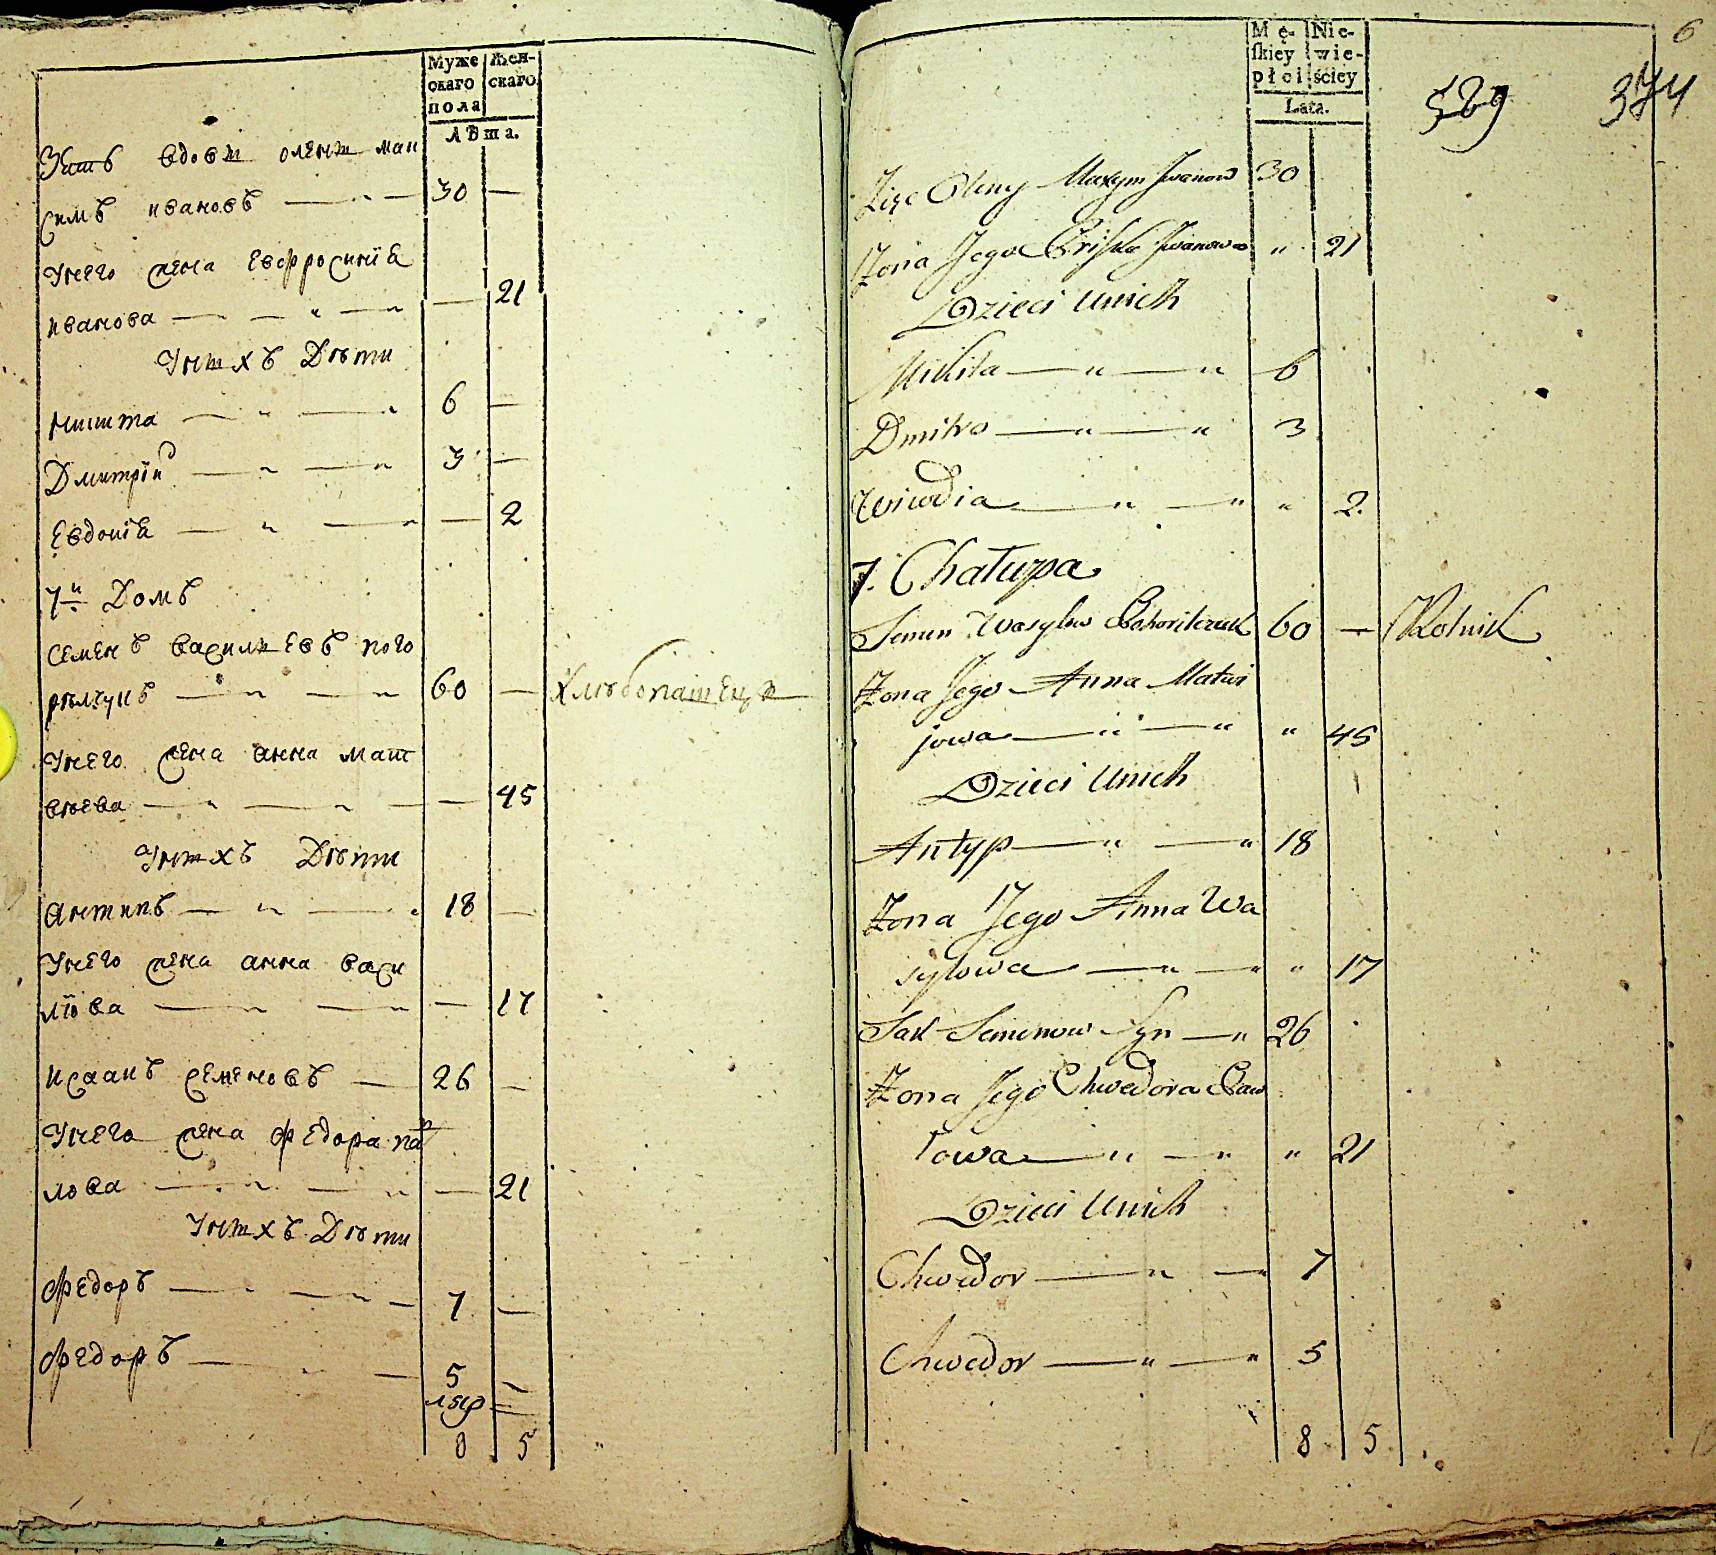 Муже
скаго
пола
Жен-
скаго
Лѣта.
Зять вдовы олены мак
симъ ивановъ — 30 —
Унего жена Евфросинїа
иванова — — 21
Унихъ Дѣти
Никита — 6 —
Дмитрїй — 3 —
Евдокїа — — 2
7й Домъ
Семенъ васильевъ пого
рѣлчукъ — 60 — Хлѣбопашецъ
Унего жена анна мат
вѣева — — 45
Унихъ Дѣти
антипъ — 18 —
Унего жена анна васи
лїова — — 17
исаакъ семеновъ — 26 —
Унего жена федора пав
лова — — 21
Унихъ Дѣти
Федоръ — 7 —
Федоръ — 5 —
8 5
6
Mę-
ſkiey
płci
Nie-
wie-
ściey
Lata.
589 374
Zięc Oleny Maxym Jwanow 30
Żona Jego Jwanowa " 21
Dzieci Unich
Mikita — " — " 6
Dmitro — " — " 3
Wiwdia — " — " " 2
7. Chałupa
Semen Wasylow Pohorilczuk 60 — Rolnik
Żona Jego Anna Matwi
jowa — " — " " 45
Dzieci Unich
Antyp — " — " 18
Żona Jego Anna Wa
sylowa — " — " " 17
Sak Semenow Syn — " 26
Żona Jego Chwedora Paw
łowa — " — " " 21
Dzieci Unich
Chwedor — " — " 7
Chwedor — " — " 5
8 5